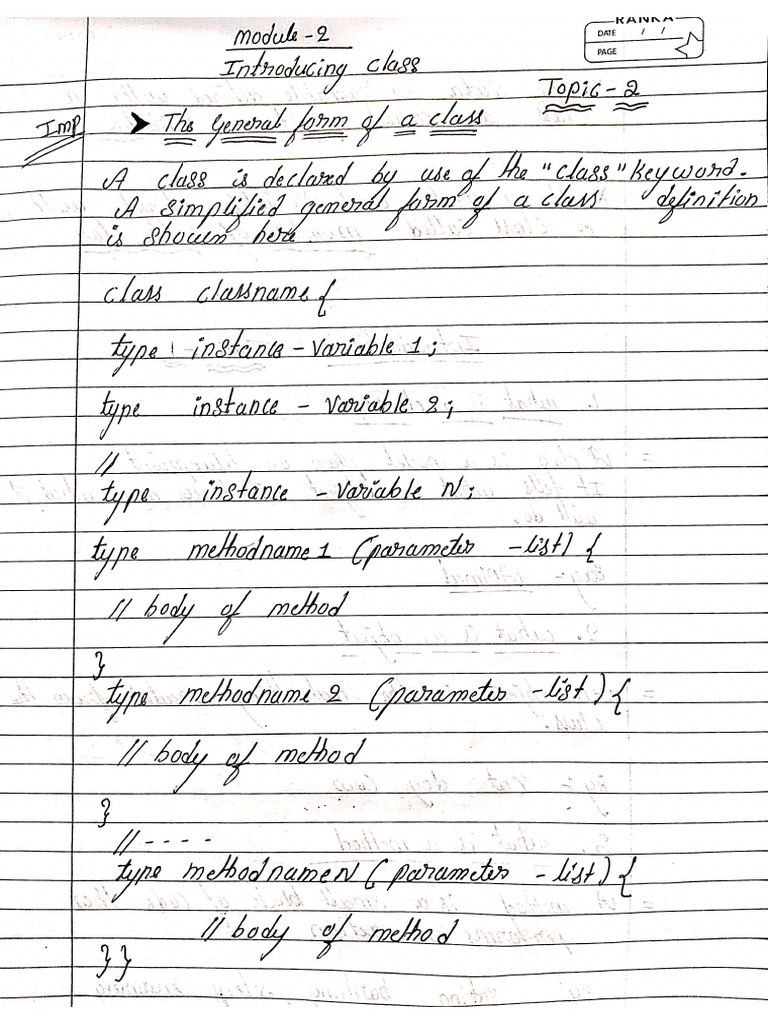 Module-2
RANKA
DATE / /
PAGE
Introducing class
Topic-2
Imp
➤ The General form of a class
A class is declared by use of the "class" keyword.
A simplified general form of a class definition
is shown here
class classname {
type instance - variable 1;
type instance - variable 2;
//
type instance - variable N;
type methodname 1 (parameter - list) {
// body of method
}
type methodname 2 (parameter - list) {
// body of method
}
// - - - -
type methodname N (parameter - list) {
// body of method
} }